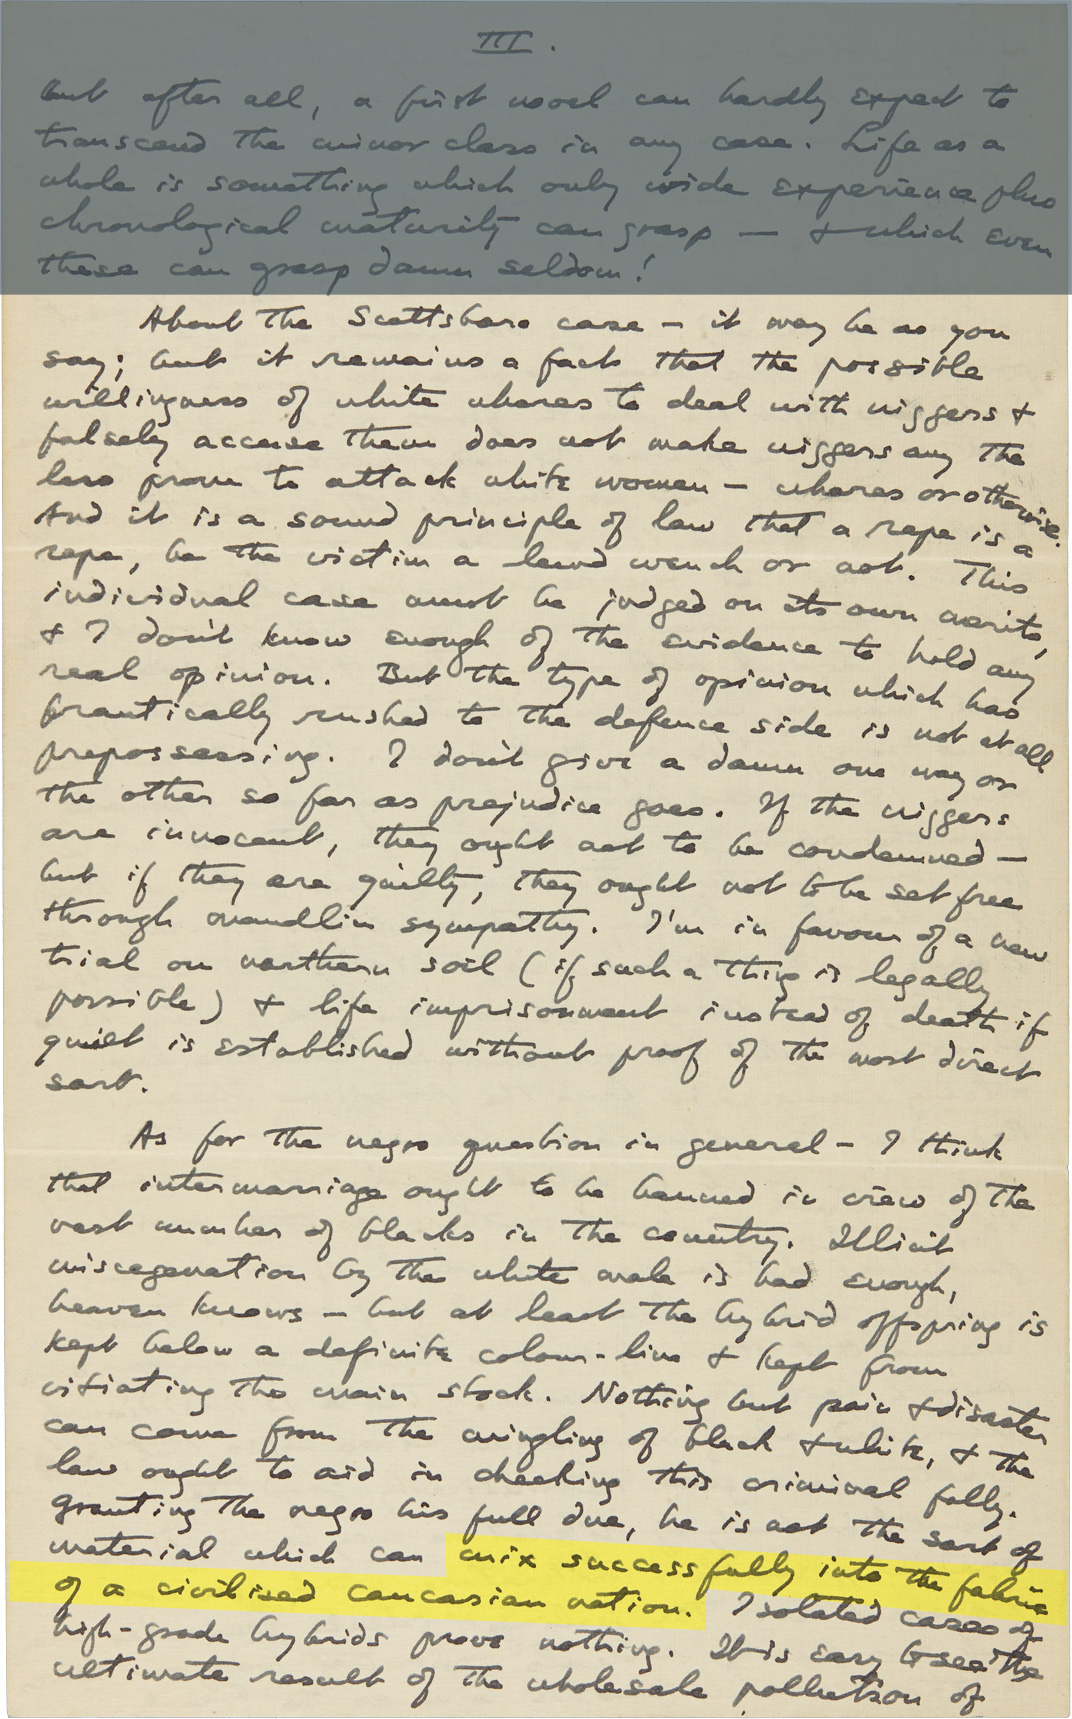 III.
but after all, a first novel can hardly expect to
transcend the minor class in any case. Life as a
whole is something which only wide experience plus
chronological maturity can grasp — & which even
these can grasp damn seldom!
About the Scottsboro case — it may be as you
say; but it remains a fact that the possible
willingness of white whores to deal with niggers &
falsely accuse them does not make niggers any the
less prone to attack white women — whores or otherwise.
And it is a sound principle of law that a rape is a
rape, be the victim a lewd wench or not. This
individual case must be judged on its own merits,
& I don't know enough of the evidence to hold any
real opinion. But the type of opinion which has
frantically rushed to the defence side is not at all
prepossessing. I don't give a damn one way or
the other so far as prejudice goes. If the niggers
are innocent, they ought not to be condemned —
but if they are guilty, they ought not to be set free
through maudlin sympathy. I'm in favour of a new
trial on northern soil (if such a thing is legally
possible) & life imprisonment instead of death if
guilt is established without proof of the most direct
sort.
As for the negro question in general — I think
that intermarriage ought to be banned in view of the
vast number of blacks in the country. Illicit
miscegenation by the white male is bad enough,
heaven knows — but at least the hybrid offspring is
kept below a definite colour-line & kept from
vitiating the main stock. Nothing but pain & disaster
can come from the mingling of black & white, & the
law ought to aid in checking this criminal folly.
Granting the negro his full due, he is not the sort of
material which can mix successfully into the fabric
of a civilised caucasian nation. Isolated cases of
high-grade hybrids prove nothing. It is easy to see the
ultimate result of the wholesale pollution of